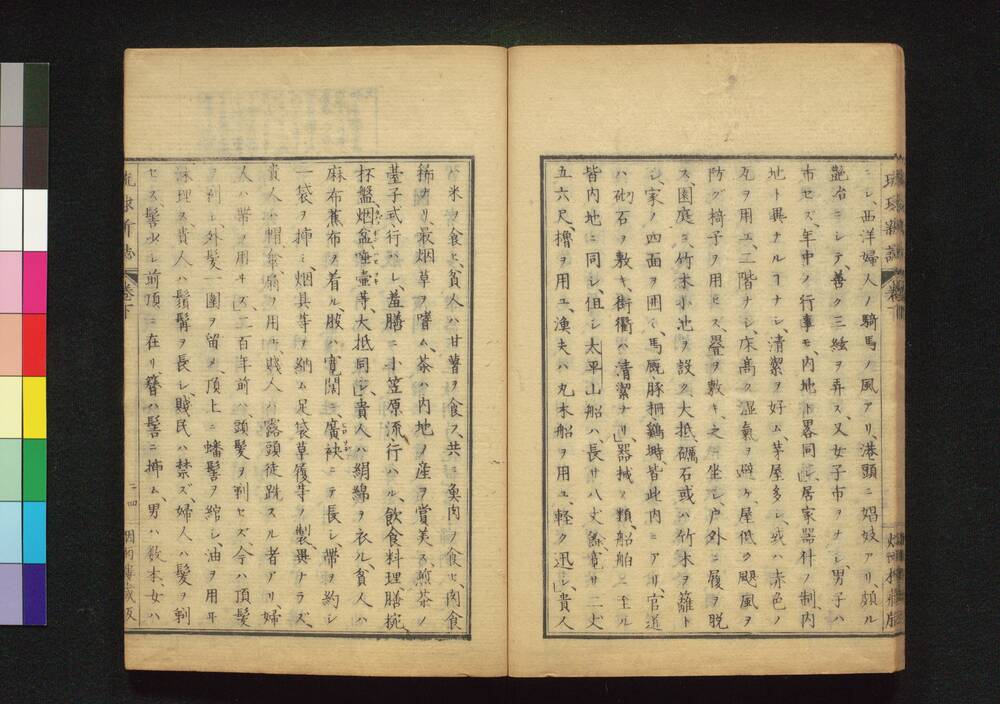 ニシ、西洋婦人ノ騎馬ノ風アリ、港頭ニ娼妓アリ、頗ル
艶冶ニシテ、善ク三絃ヲ弄ス、又女子市ヲナシ、男子ハ
市セズ、年中ノ行事モ、内地ト畧同シ、」居家器什ノ制内
地ト異ナルヿナシ、清潔ヲ好ム、茅屋多シ、或ハ赤色ノ
瓦ヲ用ユ、二階ナシ、床高ク湿氣ヲ避ケ、屋低ク颶風ヲ
防グ、椅子ヲ用ヒス、疊ヲ敷キ、之ニ坐シ、户外ニ履ヲ脱
ス、園庭ニ、竹木小池ヲ設ク、大抵、礪石或ハ竹木ヲ籬ト
シ、家ノ四面ヲ囲ミ、馬厩豚柵、鷄塒、皆此内ニアリ、官道
ハ砂石ヲ敷キ、街衢ハ清潔ナリ、」器械ノ類、船舶ニ至ル
皆内地ニ同シ、但シ太平山船ハ長サ八丈餘、寛サ二丈
五六尺、櫓ヲ用ユ、漁夫ハ丸木船ヲ用ユ、軽ク迅シ、」貴人
ハ米ヲ食ヒ、貧人ハ甘薯ヲ食フ、共ニ魚肉ヲ食ヒ、肉食
稀ナリ、最烟草ヲ嗜ム、茶ハ内地ノ産ヲ賞美ス、煎茶ノ
䑓子式行ハレ、羞膳ニ小笠原流行ハル、飲食料理膳椀、
杯盤、烟盆、唾壷等、大抵同シ、」貴人ハ絹綿ヲ衣ル、貧人ハ
麻布蕉布ヲ着ル、服ハ寛闊ニ、廣袂ニテ長シ、帯ヲ約シ
一袋ヲ挿ミ、烟具等ヲ納ム、足袋草履等ノ製異ナラズ、
貴人ハ帽傘扇ヲ用ヰ、賤人ハ露頭徒跣スル者アリ、婦
人ハ帯ヲ用ヰズ、」二百年前ハ、頭髪ヲ剃セズ、今ハ頂髪
ヲ剃シ、外髪一圍ヲ留メ、頂上ニ蟠髻ヲ綰シ、油ヲ用ヰ
梳理ス、貴人ハ鬚髯ヲ長シ、賤民ハ禁ズ、婦人ハ髪ヲ剃
セス、髻少シ前頂ニ在リ、簪ハ髻ニ挿ム、男ハ数本、女ハ
琉球新誌 卷下 二四 烟雨樓藏版